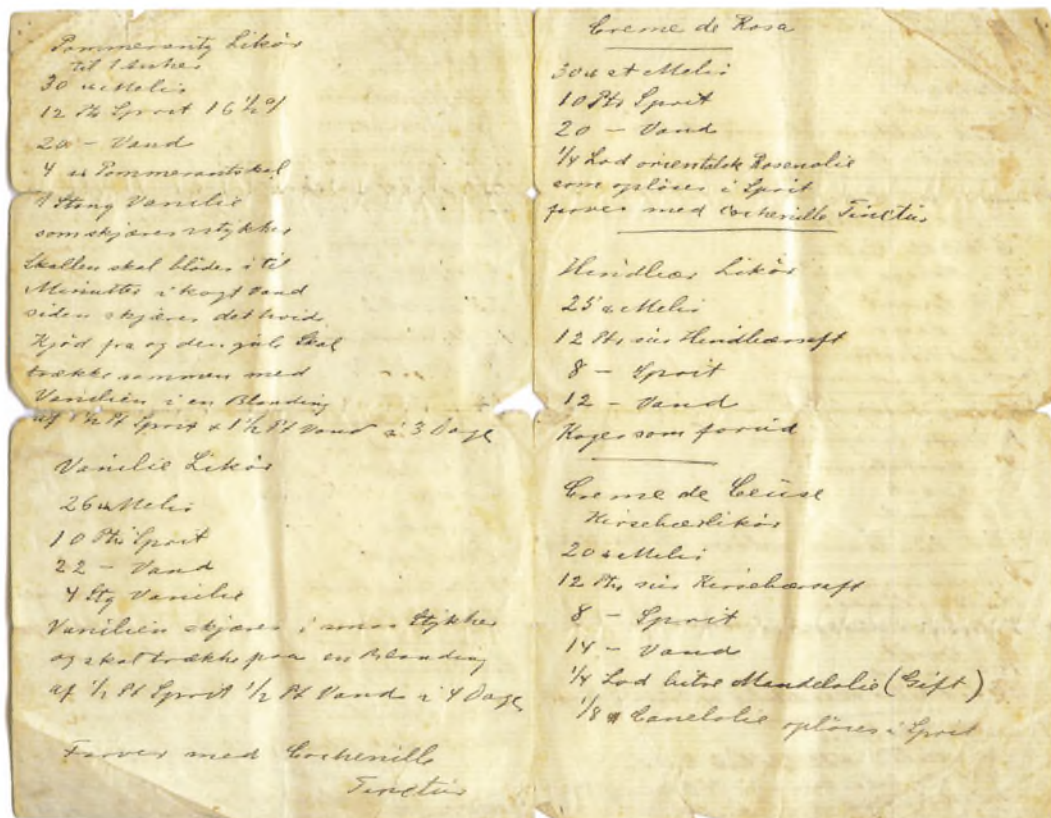 Pommerantz Likör
til 1 Anker
30 ℔ Melis
12 Ptr Sprit 16 ½ °/
20 - Vand
4 ℔ Pommerantskal
1 Stang Vanilie
som skjæres i stykker
Skallen skal blödes i til
Minutter i kogt Vand
siden skjæres det hvide
Kjöd fra og den gule Skal
trække sammen med
Vanilien i en Blanding
af 1½ Pt Sprit & 1½ Pt Vand i 3 Dage
Vanilie Likör
26 ℔ Melis
10 Ptr Sprit
22 - Vand
4 Stg Vanilie
Vanilien skjæres i smaa Stykker
og skal trække paa en Blanding
af ½ Pt Sprit ½ Pt Vand i 4 Dage
Farves med Cochenille
Tinctur
Creme de Rosa
30 ℔ st Melis
10 Ptr Sprit
20 - Vand
¼ Lod orientalsk Rosenolie
som oplöses i Sprit
farves med Cochenille Tinctur
Hindbær Likör
25 ℔ Melis
12 Ptr sür Hindbærsaft
8 - Sprit
12 - Vand
Koges som forud
Creme de Ceüse
Kirsebærlikör
20 ℔ Melis
12 Ptr sür Kirsebærsaft
8 - Sprit
14 - Vand
¼ Lod bitre Mandelolie (Gift)
⅛ " Canelolie oplöses i Sprit